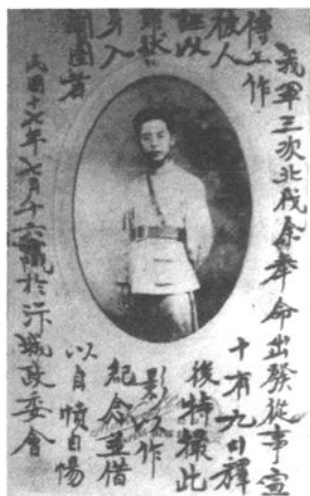 我軍三次北伐余奉命出發從事宣
傳工作
被人
誣以
罪狀
身入
囹圄者
十有九日釋
後特攝此
影以作
紀念並借
以自憤自惕
民國十七年七月十六識於汴城政委會